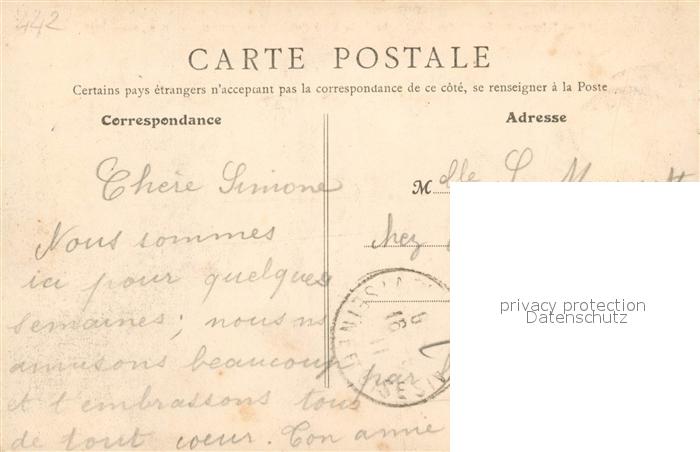 442
CARTE POSTALE
Certains pays étrangers n'acceptant pas la correspondance de ce côté, se renseigner à la Poste
Correspondance
Adresse
Chère Simone
Nous sommes
ici pour quelques
semaines; nous ns
amusons beaucoup
et t'embrassons tous
de tout coeur. Ton amie
Melle S.
chez
par
privacy protection
Datenschutz